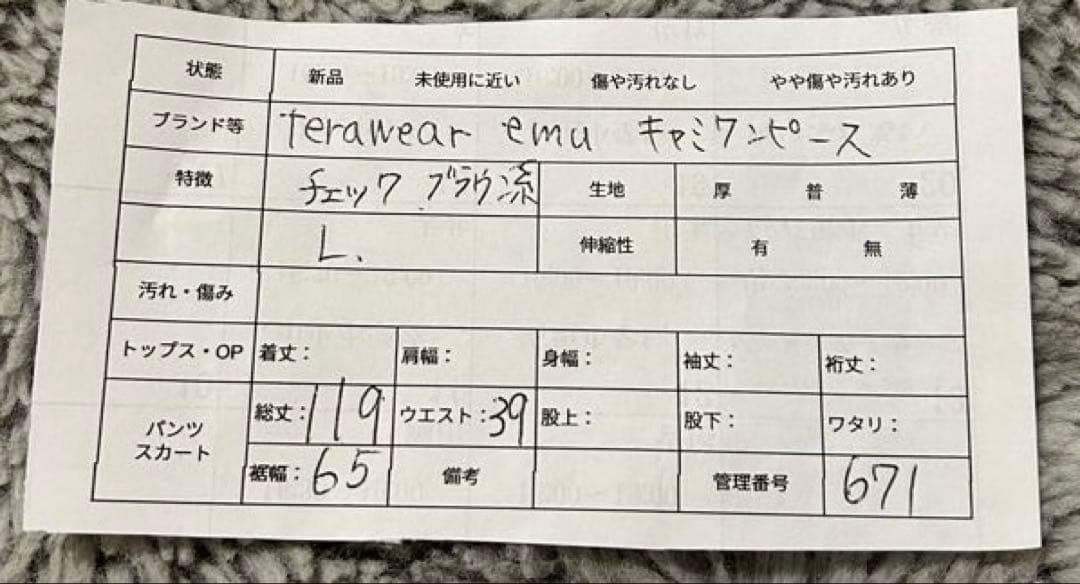 状態 新品 未使用に近い 傷や汚れなし やや傷や汚れあり
ブランド等 terawear emu キャミワンピース
特徴 チェック ブラウ 生地 厚 普 薄
L. 伸縮性 有 無
汚れ・傷み
トップス・OP 着丈： 肩幅： 身幅： 袖丈： 裄丈：
パンツ スカート 総丈：119 ウエスト：39 股上： 股下： ワタリ：
裾幅：65 備考 管理番号 671